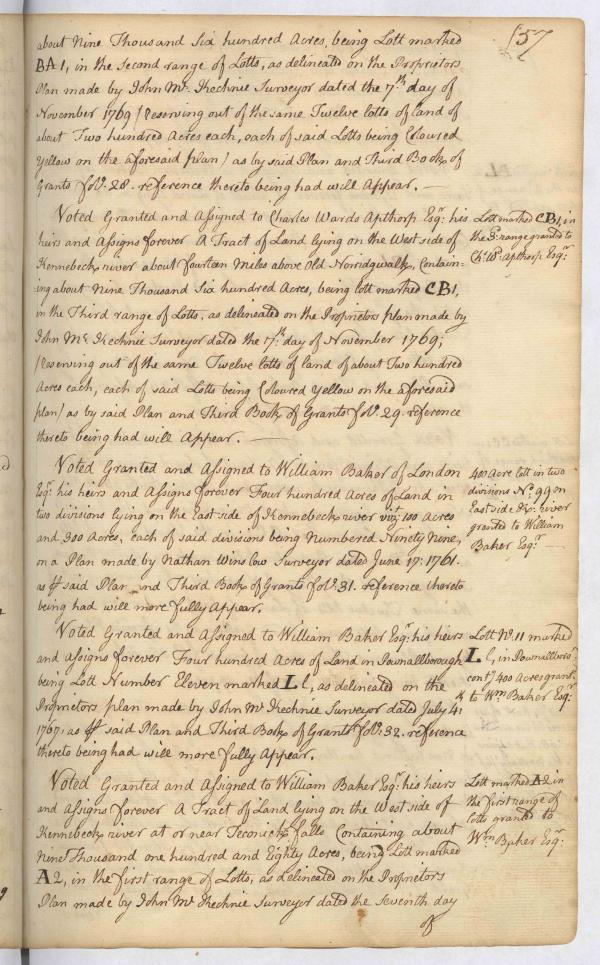 157
about Nine Thousand Six hundred Acres, being Lott marked
BA1, in the Second range of Lotts, as delineated on the Proprietors
Plan made by John Mc. Kechnie Surveyor dated the 7th. day of
November 1769 /Reserving out of the same Twelve lotts of land of
about Two hundred Acres each, each of said Lotts being Coloured
Yellow on the aforesaid plan/ as by said Plan and Third Book of
Grants fol: 28. reference thereto being had will Appear. —
Voted Granted and Assigned to Charles Wards Apthorp Esqr. his
heirs and Assigns forever A Tract of Land lying on the West side of
Kennebeck river about fourteen Miles above Old Noridgwalk, Contain-
ing about Nine Thousand Six hundred Acres, being lott marked CB1,
in the Third range of Lotts, as delineated on the Proprietors plan made by
John Mc. Kechnie Surveyor dated the 7th. day of November 1769;
/Reserving out of the same Twelve lotts of land of about Two hundred
Acres each, each of said Lotts being Coloured Yellow on the aforesaid
plan/ as by said Plan and Third Book of Grants fol: 29. reference
thereto being had will Appear. —
Lott marked CB1, in
the 3d. range granted to
Chs. Wd. Apthorp Esqr.
Voted Granted and Assigned to William Baker of London
Esqr. his heirs and Assigns forever Four hundred Acres of Land in
two divisions lying on the East side of Kennebeck river vizt. 100 Acres
and 300 Acres, each of said divisions being Numbered Ninety Nine,
on a Plan made by Nathan Winslow Surveyor dated June 17: 1761.
as said Plan and Third Book of Grants fol: 31. reference thereto
being had will more fully Appear.
400 Acre lott in two
divisions No. 99 on
East side river
granted to William
Baker Esqr. —
Voted Granted and Assigned to William Baker Esqr. his heirs
and assigns forever Four hundred Acres of Land in Pownallborough
being Lott Number Eleven marked L l, as delineated on the
Proprietors plan made by John Mc. Kechnie Surveyor dated July 4th.
1767, as said Plan and Third Book of Grants fol: 32. reference
thereto being had will more fully Appear.
Lott No. 11 marked
L l, in Pownallboro'
400 Acres
to Wm. Baker Esqr.
Voted Granted and Assigned to William Baker Esqr. his heirs
and Assigns forever A Tract of Land lying on the West side of
Kennebeck river at or near Teconick falls Containing about
Nine Thousand one hundred and Eighty Acres, being Lott marked
A2, in the first range of Lotts, as delineated on the Proprietors
Plan made by John Mc. Kechnie Surveyor dated the Seventh day
of
Lott marked A2 in
the first range of
Lotts granted to
Wm. Baker Esqr.